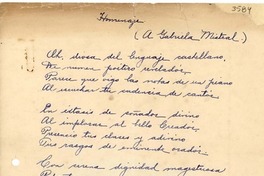 3584
Homenaje
(A Gabriela Mistral)
Ah, diosa del lenguaje castellano,
De numen poético
Parece que oigo las notas de un piano
Al escuchar tu cadencia de
En éxtasis de soñador divino
Al implorar al bello Creador,
tus clases y adivino
Tus rasgos de eminente orador.
Con dignidad majestuosa